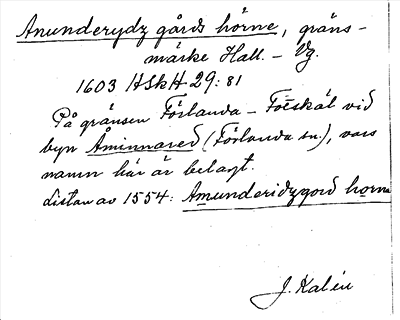 Amunderydz gårds hörne, gräns-
märke Hall. - Vg.
1603 HSkH 29: 81
På gränsen Förlanda - Fotskäl vid
byn Åminnared (Förlanda sn), vars
namn här är belagt.
Listan av 1554: Amunderidzgord horne
J. Kalén